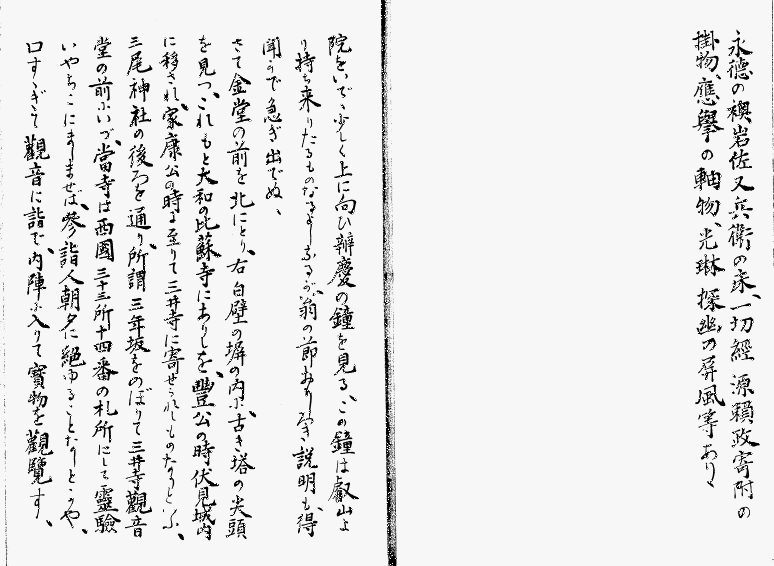 永德の襖岩佐又兵衛の床、一切經 源賴政寄附の
掛物、應擧の軸物、光琳 探幽の屏風等あり、
院をいで、少しく上に向ひ辨慶の鐘を見る、この鐘は叡山よ
り持ち来りたるものなるよしなるが、翁の節あり 説明も、得
聞かで急ぎ出でぬ、
さて金堂の前を北にとり、右 白壁の塀の内に、古き塔の尖頭
を見つ、これもと大和の比蘇寺にありしを、豐公の時伏見城内
に移され、家康公の時に至りて三井寺に寄せられしものなりといふ、
三尾神社の後ろを通り、所謂 三年坂をのぼりて三井寺觀音
堂の前にいづ、當寺は西國 三十三所十四番の札所にして靈驗
いやちこにましませば、參詣人朝夕に絕ゆることなしとかや、
口すゝぎて觀音に詣で、内陣に入りて寳物を觀覽す、